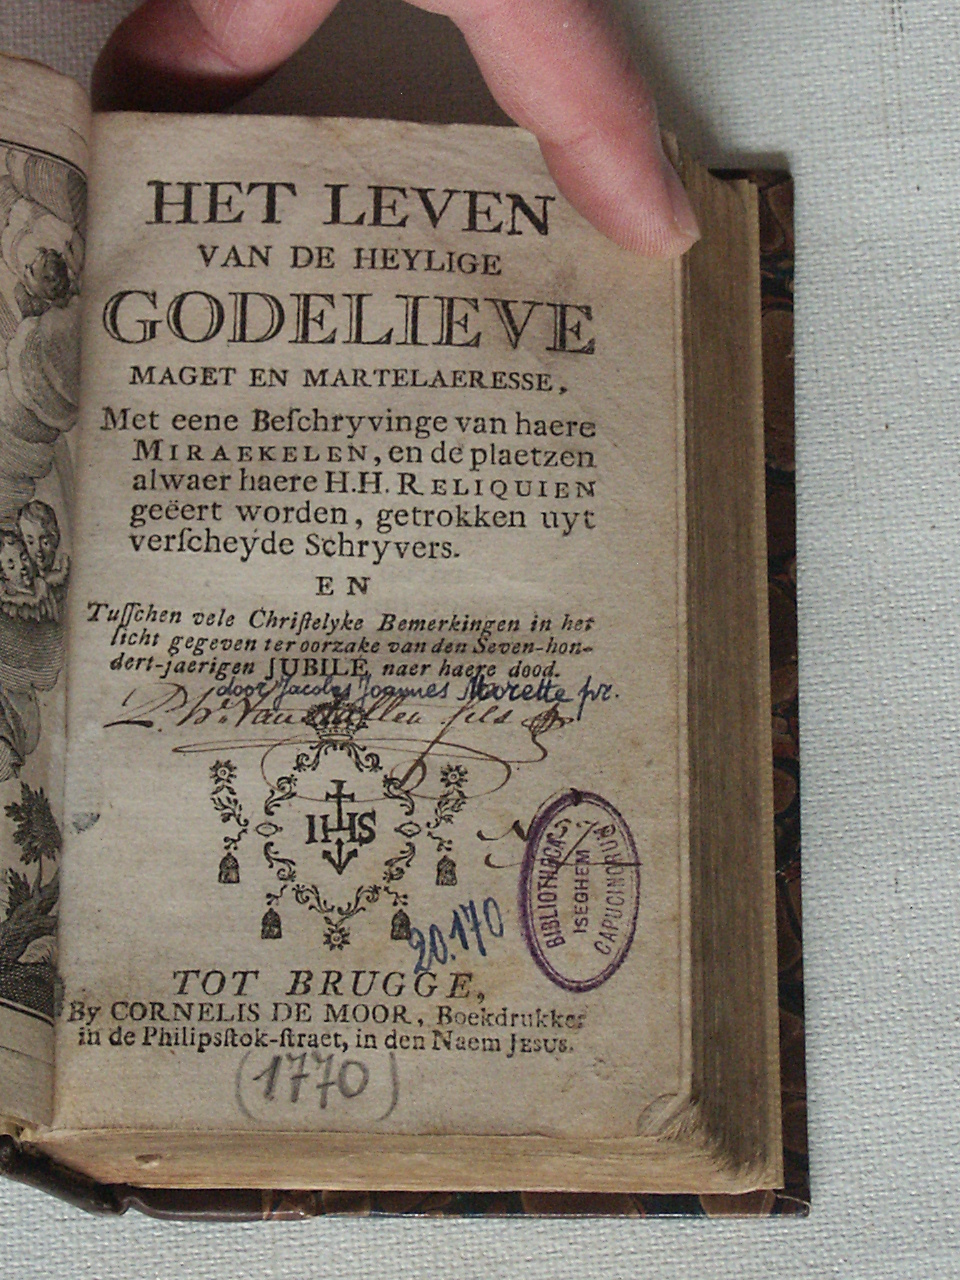 HET LEVEN
VAN DE HEYLIGE
GODELIEVE
MAGET EN MARTELAERESSE,
Met eene Beſchryvinge van haere
MIRAEKELEN, en de plaetzen
alwaer haere H.H. RELIQUIEN
geëert worden, getrokken uyt
verſcheyde Schryvers.
EN
Tuſſchen vele Chriſtelyke Bemerkingen in het
licht gegeven ter oorzake van den Seven-hon-
dert-jaerigen JUBILÉ, naer haere dood.
door Jacobs Joannes Marette pr.
fils
IHS
BIBLIOTHECA
ISEGHEM
CAPUCINORUM
20.170
TOT BRUGGE,
By CORNELIS DE MOOR, Boekdrukker
in de Philipsſtok-ſtraet, in den Naem JESUS.
(1770)